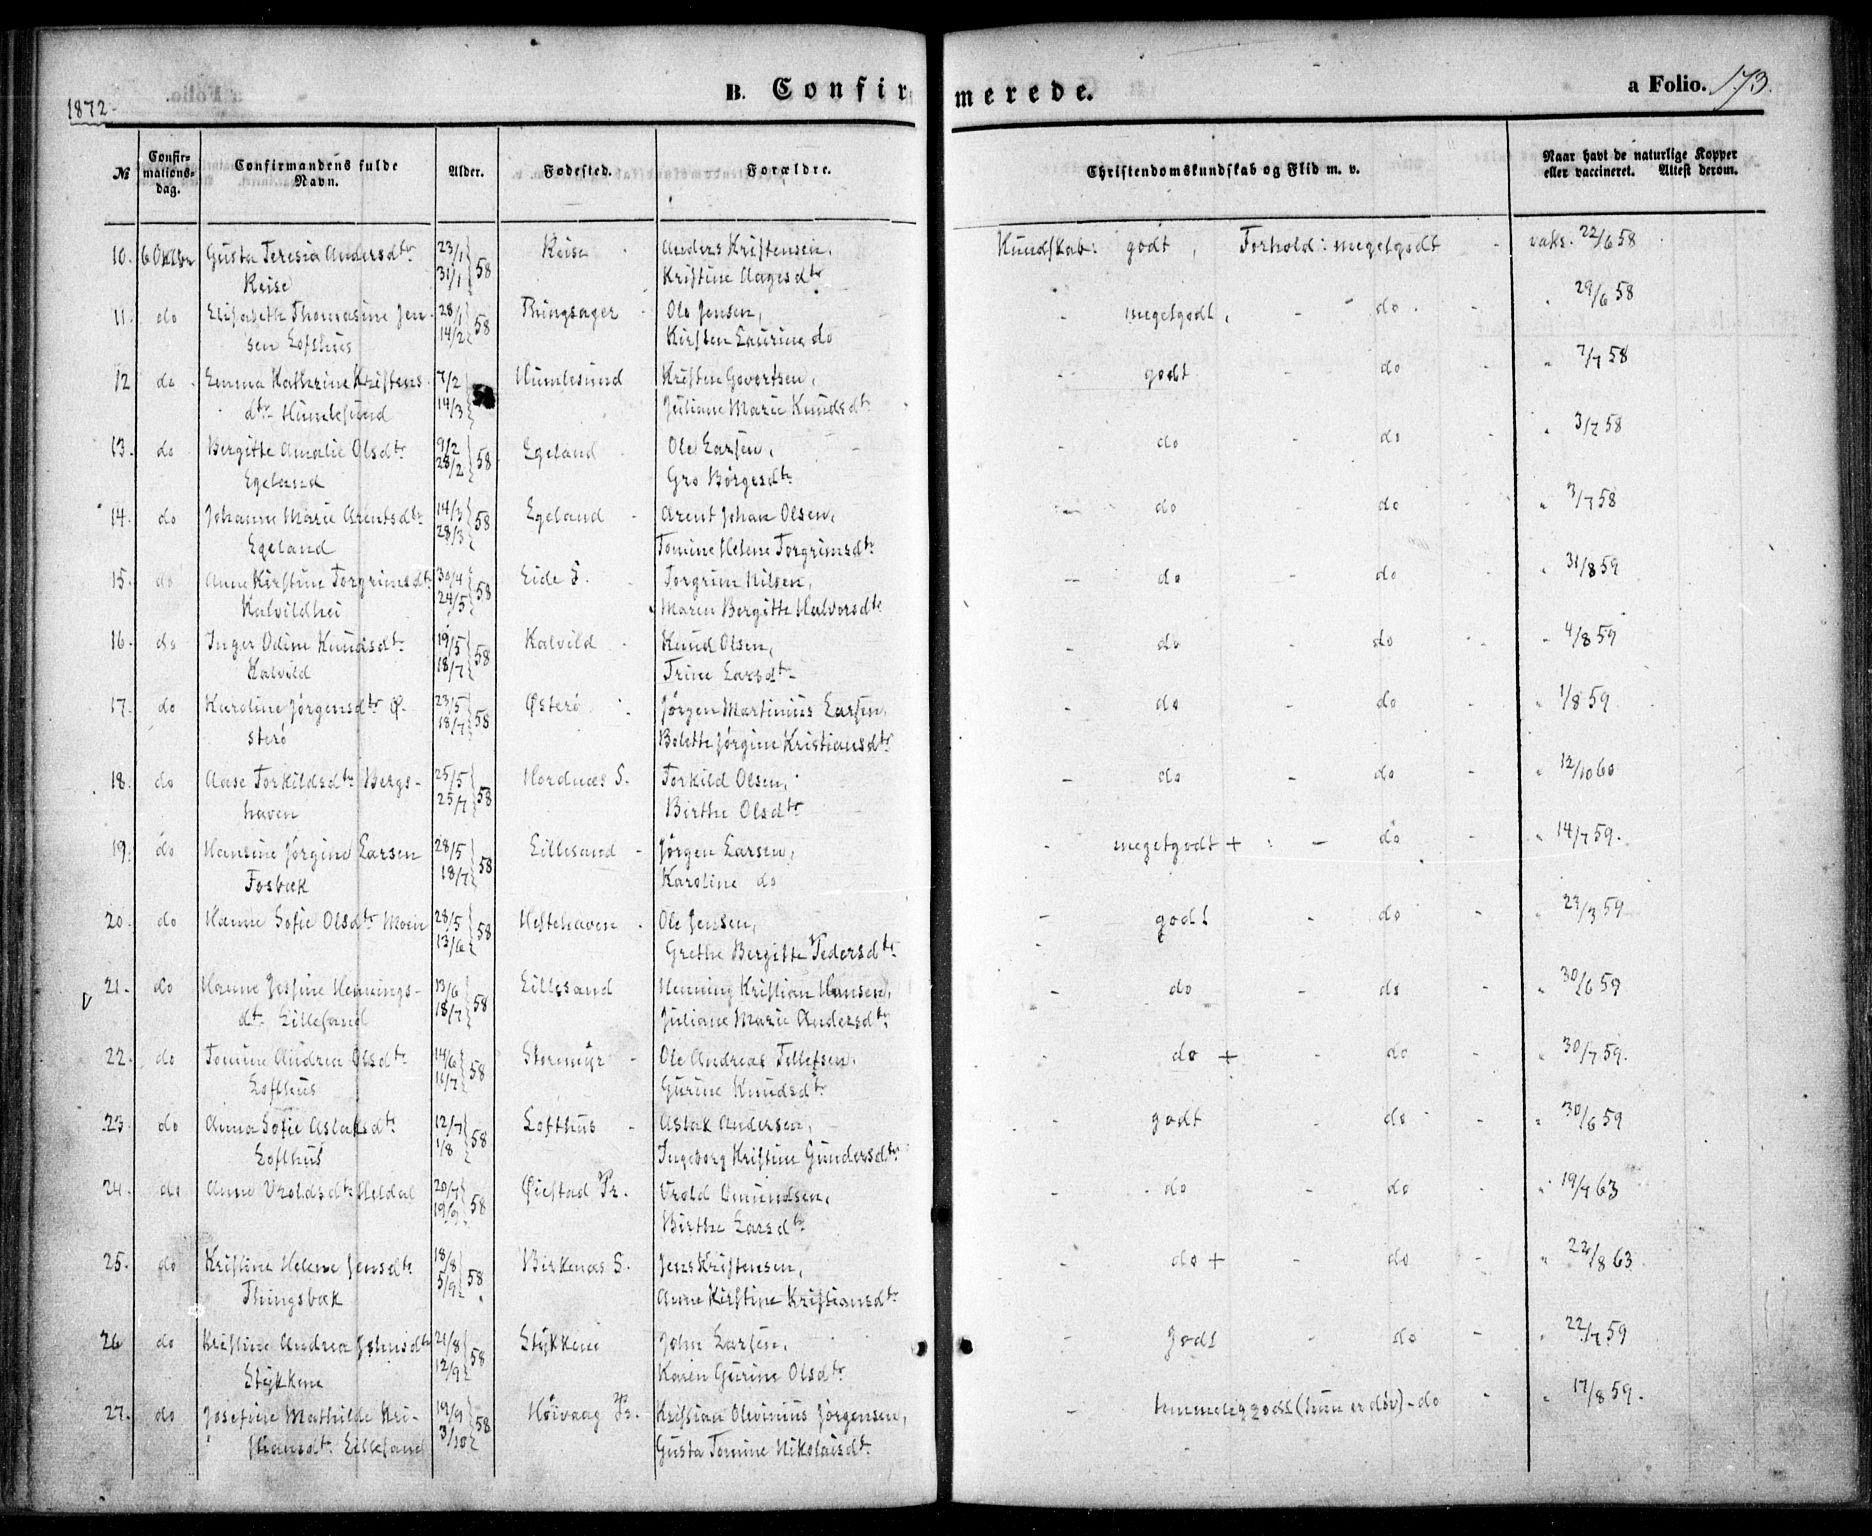 1872.
B. Confirmerede.
a Folio. 173.
№ Confirmationsdag. Confirmandens fulde Navn. Alder. Fødested. Forældre. Christendomskundskab og Flid m. v. Naar havt de naturlige Kopper eller vaccineret. Attest derom.
10. 6 Oktbr Gusta Teresia Andersdtr 23/1 58 Reise Anders Kristensen, Kundskab: godt, Forhold: megetgodt vaks. 22/6 58
Reise 31/1 Kristine Aagesdtr
11. do Elisabeth Thomasine Jen- 28/1 58 Ringsager Ole Jensen, - megetgodt, - do - " 29/6 58
sen Lofthus 14/2 Kirsten Laurine do
12 do Emma Kathrine Kristens- 7/2 58 Humlesund Kristen Govertsen, - godt - do " 7/7 58
dtr Humlesund 14/3 Juliane Marie Knudsdtr
13. do Bergitte Amalie Olsdtr 9/2 58 Egeland Ole Larsen, - do - do - " 3/7 58
Egeland 28/2 Gro Börgesdtr
14. do Johanne Marie Arentsdtr 14/3 58 Egeland Arent Johan Olsen, - do - do - " 3/7 58
Egeland 28/3 Tomine Helene Torgrimsdtr
15. do Anne Kirstine Torgrimsdtr 30/4 58 Eide S. Torgrim Nilsen, - do - do " 31/8 59
Kalvildhei 24/5 Maren Bergitte Halvorsdtr
16. do Inger Odine Knudsdtr 19/5 58 Kalvild Knud Olsen, - do - do - " 4/8 59
Kalvild 18/7 Trine Larsdtr
17. do Karoline Jörgensdtr Ø- 23/5 58 Østerö Jörgen Martinius Larsen, - do - do - " 1/8 59
sterö 18/7 Bolette Jörgine Kristiansdtr
18. do Aase Torkildsdtr Bergs- 25/5 58 Hordnæs S. Torkild Olsen, - do - do - " 12/10 60
haven 25/7 Birthe Olsdtr
19. do Hansine Jörgine Larsen 28/5 58 Lillesand Jörgen Larsen, - megetgodt + - do - " 14/7 59.
Fosbæk 18/7 Karoline do
20. do Hanne Sofie Olsdtr Moen 28/5 58 Heftehaven Ole Jensen, - godt - do - " 23/3 59
13/6 Grethe Bergitte Pedersdtr
21. do Hanne Josfine Hennings- 13/6 58 Lillesand Henning Kristian Hansen, - do - do - " 30/6 59
dtr Lillesand 18/7 Juliane Marie Andersdtr
22. do Tomine Andrea Olsdtr 14/6 58 Stormyr Ole Andreas Tellefsen, - do + - do - " 30/7 59.
Lofthus 11/7 Gurine Knudsdtr
23. do Anna Sofie Aslaksdtr 12/7 58 Lofthus Aslak Andersen, - godt - do - " 30/6 59
Lofthus 1/8 Ingeborg Kristine Gundersdtr
24. do Anne Vroldsdtr Heldal 20/7 58 Øiestad Pr. Vrold Omundsen, - do - do - " 19/7 63
19/9 Birthe Larsdtr
25. do Kristine Helene Jensdtr 18/8 58 Birkenæs S. Jens Kristensen, - do + - do - " 22/8 63
Thingsbæk 5/9 Anne Kirstine Kristiansdtr
26 do Kristine Andrea Johnsdtr 21/8 58 Stykkene John Larsen, - godt - do - " 22/7 59
Stykkene 12/9 Karen Gurine Olsdtr
27. do Josefine Mathilde Kri- 19/9 58 Höivaag Pr. Kristian Olevinius Jörgensen, - temmelig godt (hun er döv) - do - " 17/8 59.
stiansdtr. Lillesand 3/10 Gusta Tomine Nikolaisdtr